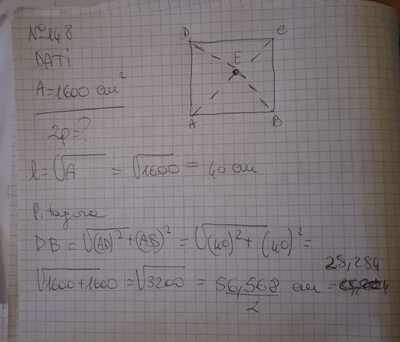 N° 148
DATI
A = 1600 cm²
2p = ?
D C
E
A B
l = √A = √1600 = 40 cm
Pitagora
DB = √(AD)² + (AB)² = √(40)² + (40)² =
√1600 + 1600 = √3200 = 56,568 cm = 28,284
2